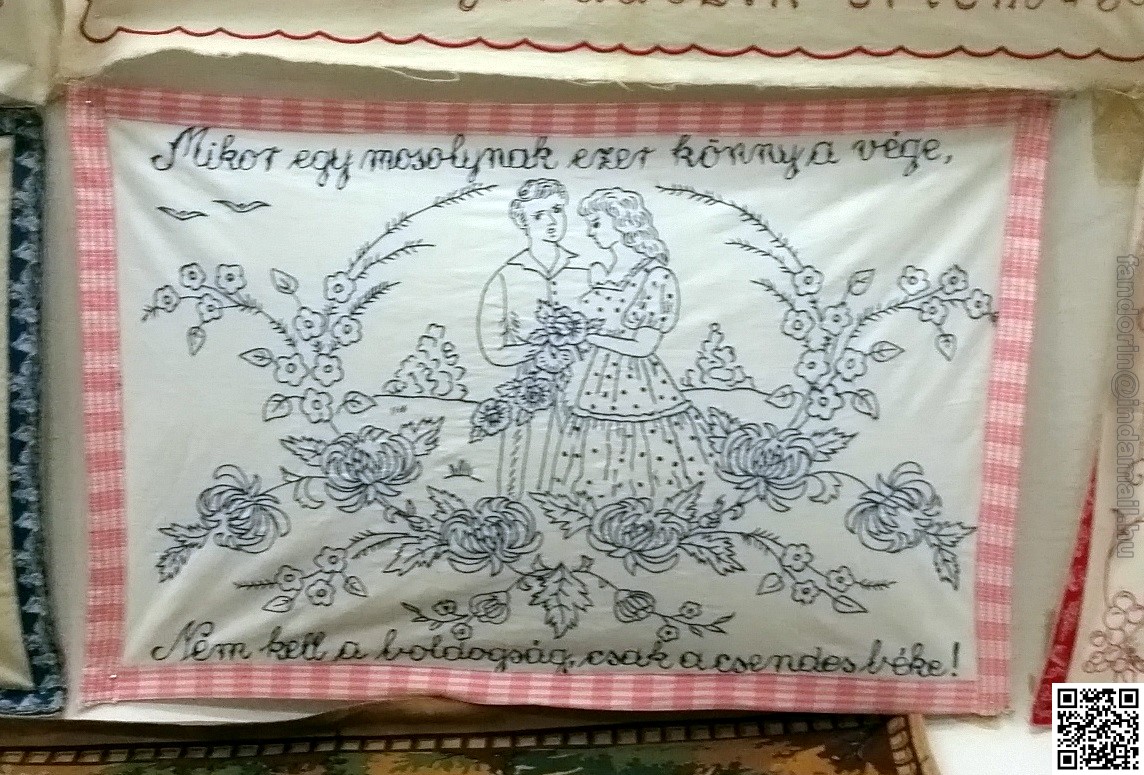 Mikor egy mosolynak ezer könny a vége,
Nem kell a boldogság, csak a csendes béke!
fandorin@indamail.hu